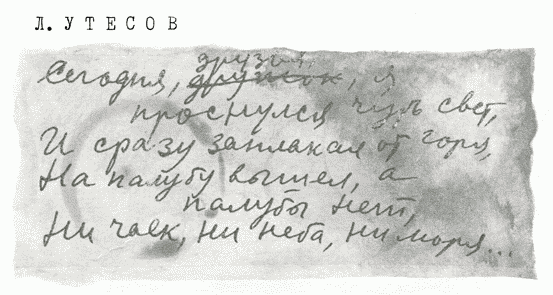 Л. УТЕСОВ
друзья,
Сегодня, дружок, я
проснулся чуть свет,
И сразу заплакал от горя,
На палубу вышел, а
палубы нет,
Ни чаек, ни неба, ни моря...